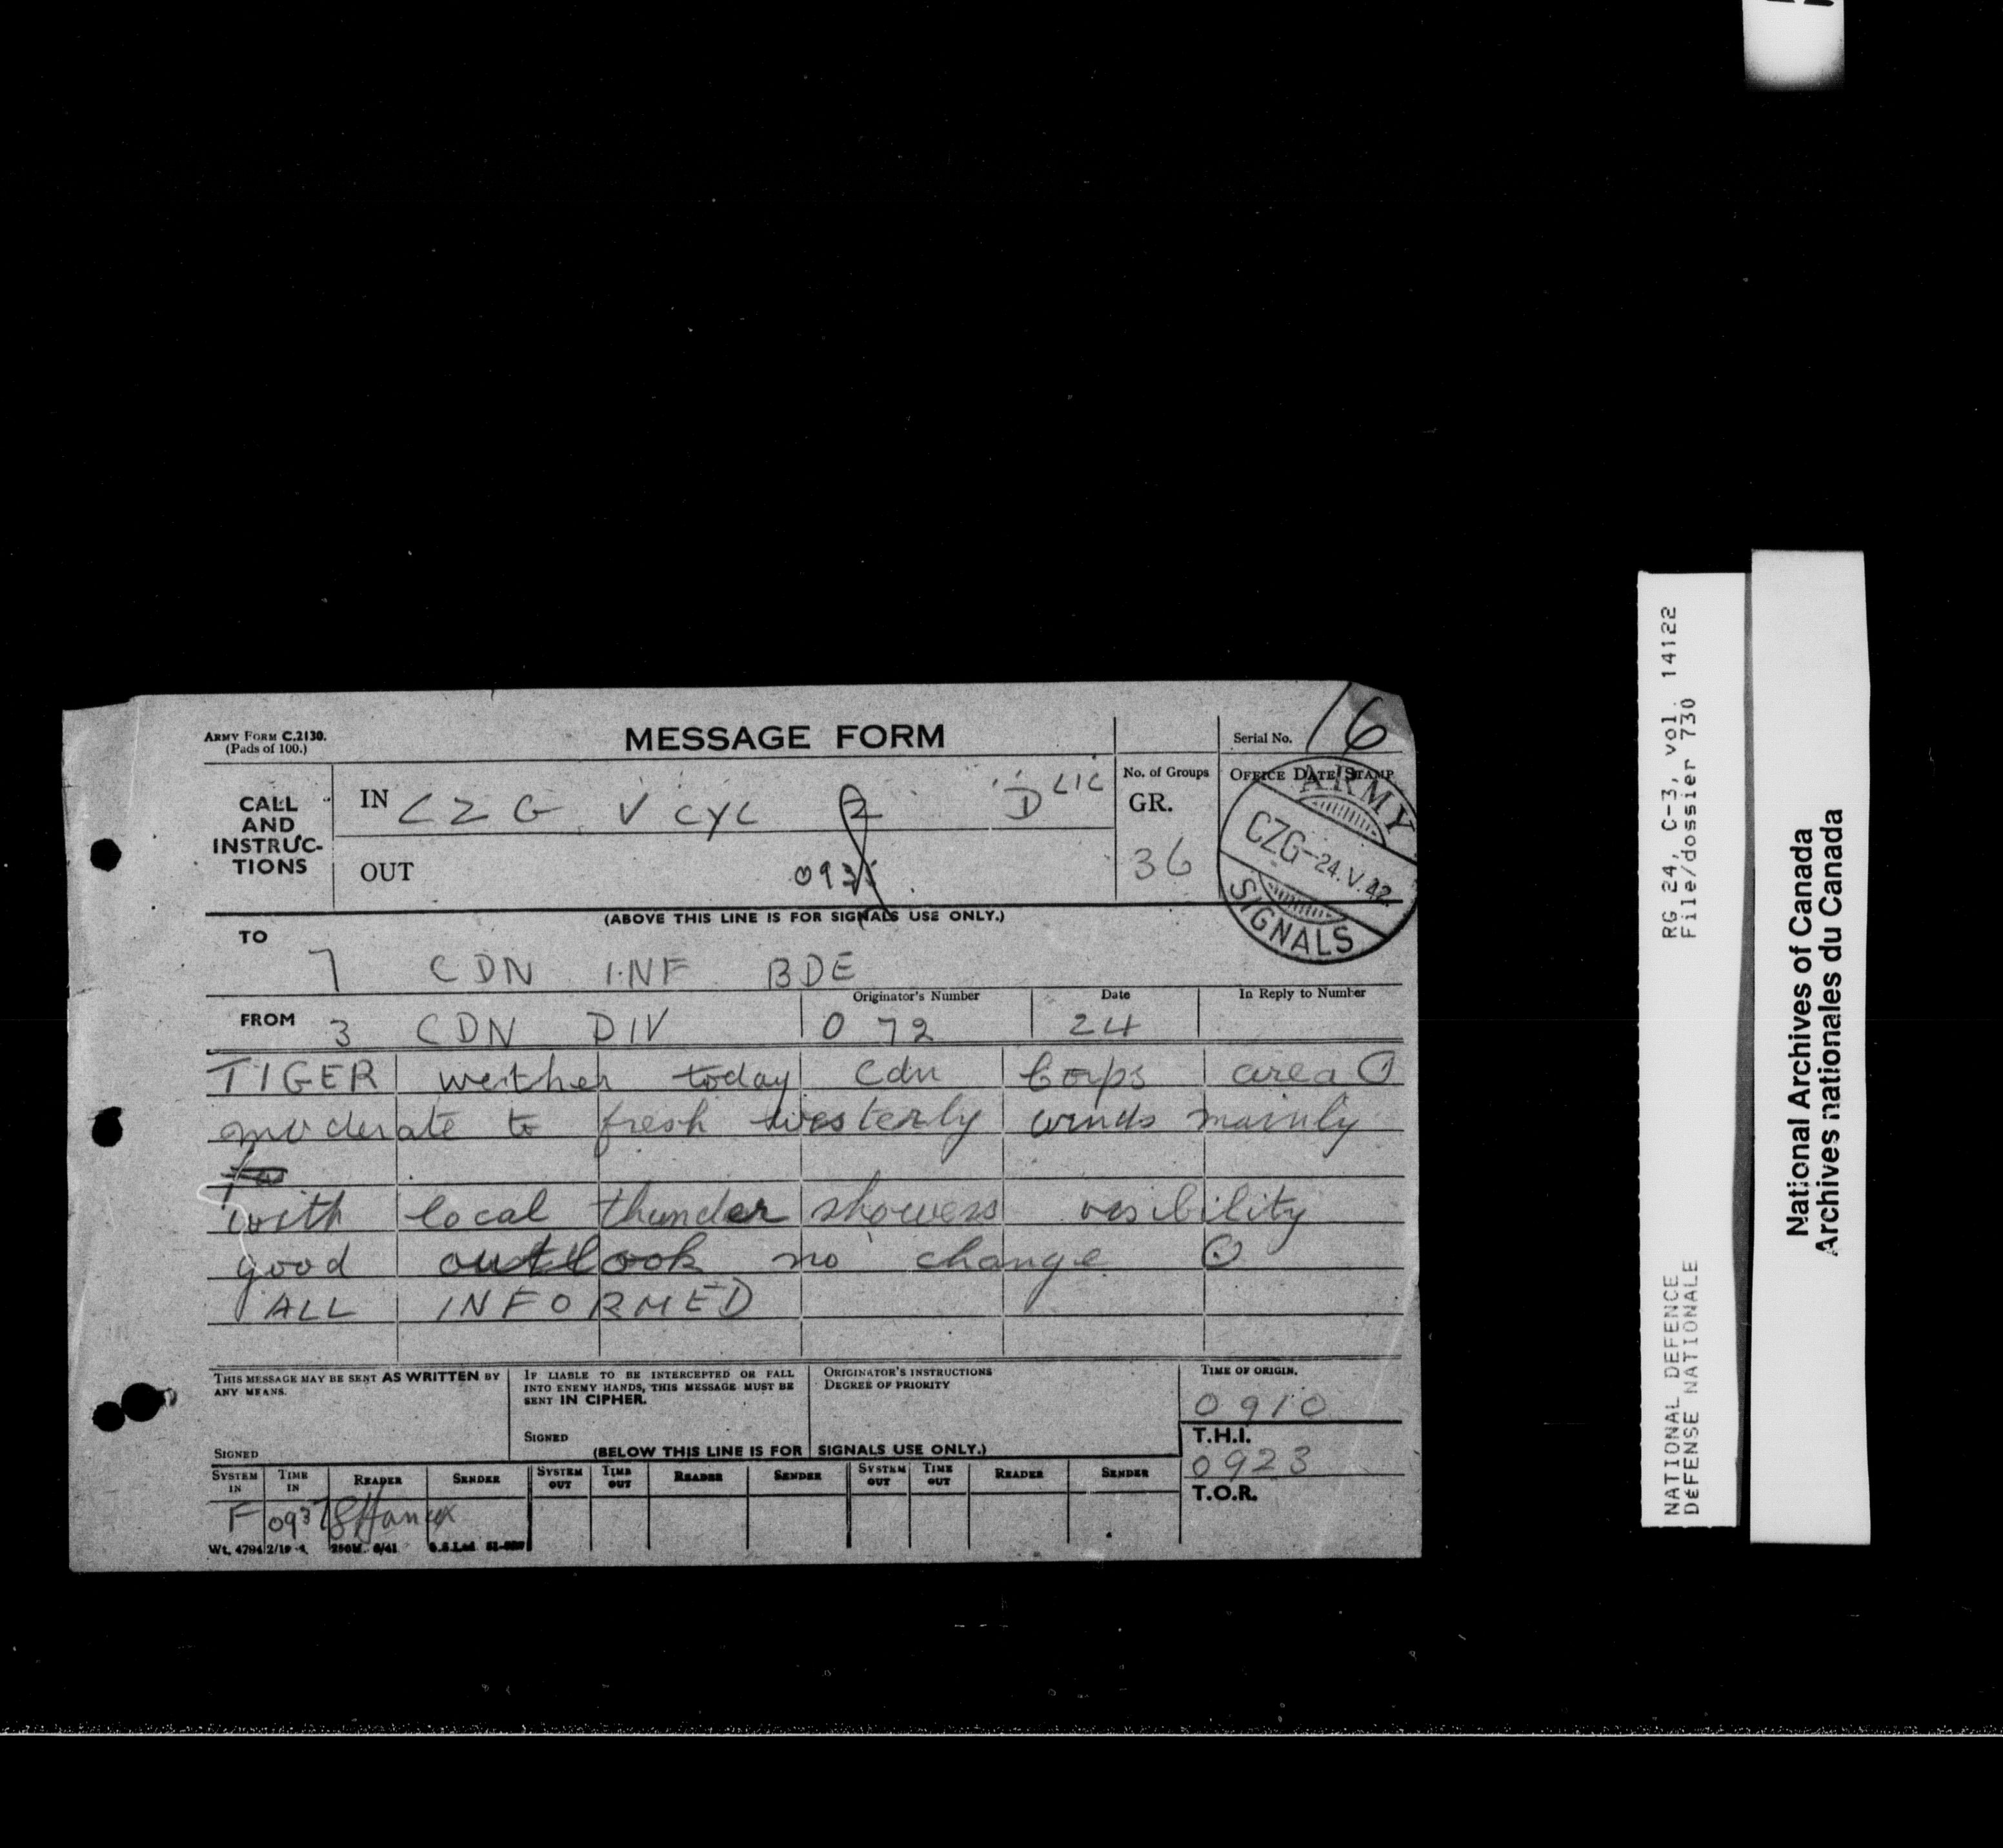 ARMY FORM C.2130.
(Pads of 100.)
MESSAGE FORM
Serial No. 16
CALL AND INSTRUC-TIONS
IN CZG V CYC D LIC
OUT
No. of Groups
GR.
36
OFFICE DATE STAMP
ARMY
CZG-24.V.42.
SIGNALS
(ABOVE THIS LINE IS FOR SIGNALS USE ONLY.)
TO
7 CDN INF BDE
FROM 3 CDN DIV
Originator's Number
O 72
Date
24
In Reply to Number
TIGER weither today Cdn Corps area
moderate to fresh westerly winds mainly
with local thunder showers visibility
good outlook no change
ALL INFORMED
THIS MESSAGE MAY BE SENT AS WRITTEN BY
ANY MEANS.
SIGNED
IF LIABLE TO BE INTERCEPTED OR FALL
INTO ENEMY HANDS, THIS MESSAGE MUST BE
SENT IN CIPHER.
SIGNED
ORIGINATOR'S INSTRUCTIONS
DEGREE OF PRIORITY
TIME OF ORIGIN.
0910
T.H.I.
0923
T.O.R.
(BELOW THIS LINE IS FOR SIGNALS USE ONLY.)
SYSTEM IN TIME IN READER SENDER SYSTEM OUT TIME OUT READER SENDER SYSTEM OUT TIME OUT READER SENDER
F 0937
RG 24, C-3, vol. 14122
File/dossier 730
NATIONAL DEFENCE
DÉFENSE NATIONALE
National Archives of Canada
Archives nationales du Canada